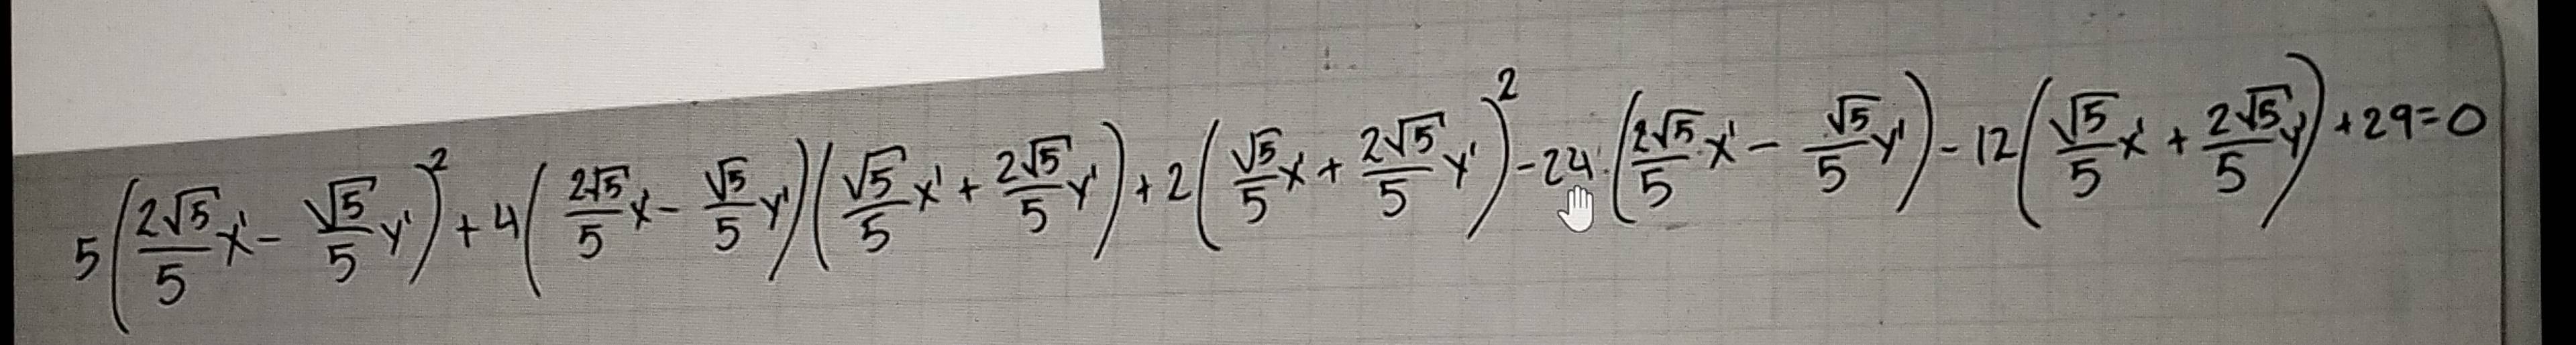 5(2√5/5 x' - √5/5 y')² + 4(2√5/5 x' - √5/5 y')(√5/5 x' + 2√5/5 y') + 2(√5/5 x' + 2√5/5 y')² - 24·(2√5/5 x' - √5/5 y') - 12(√5/5 x' + 2√5/5 y') + 29 = 0